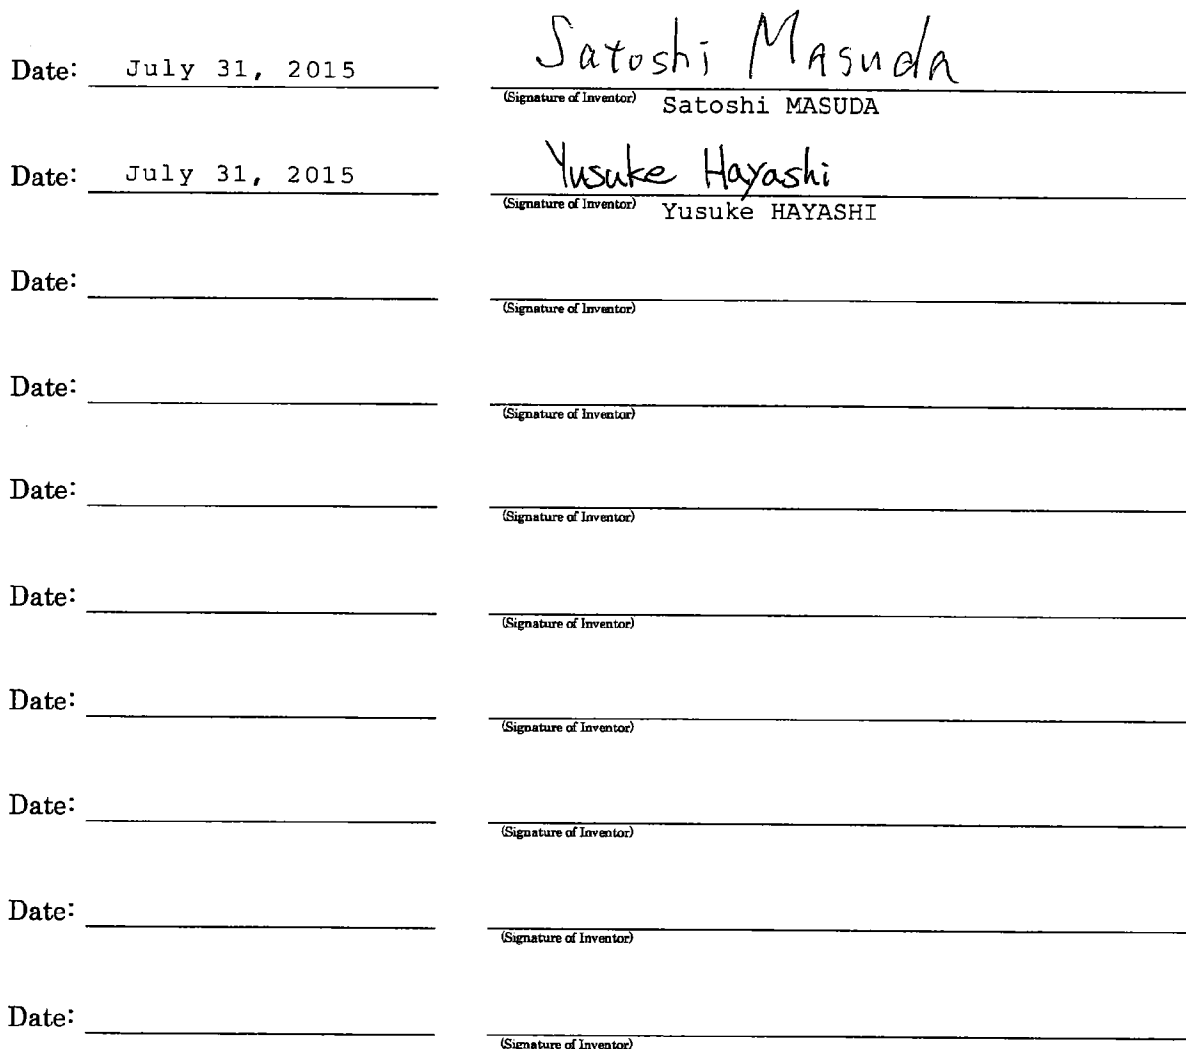 Satoshi Masuda
Date: July 31, 2015
(Signature of Inventor) Satoshi MASUDA
Yusuke Hayashi
Date: July 31, 2015
(Signature of Inventor) Yusuke HAYASHI
Date:
(Signature of Inventor)
Date:
(Signature of Inventor)
Date:
(Signature of Inventor)
Date:
(Signature of Inventor)
Date:
(Signature of Inventor)
Date:
(Signature of Inventor)
Date:
(Signature of Inventor)
Date:
(Signature of Inventor)